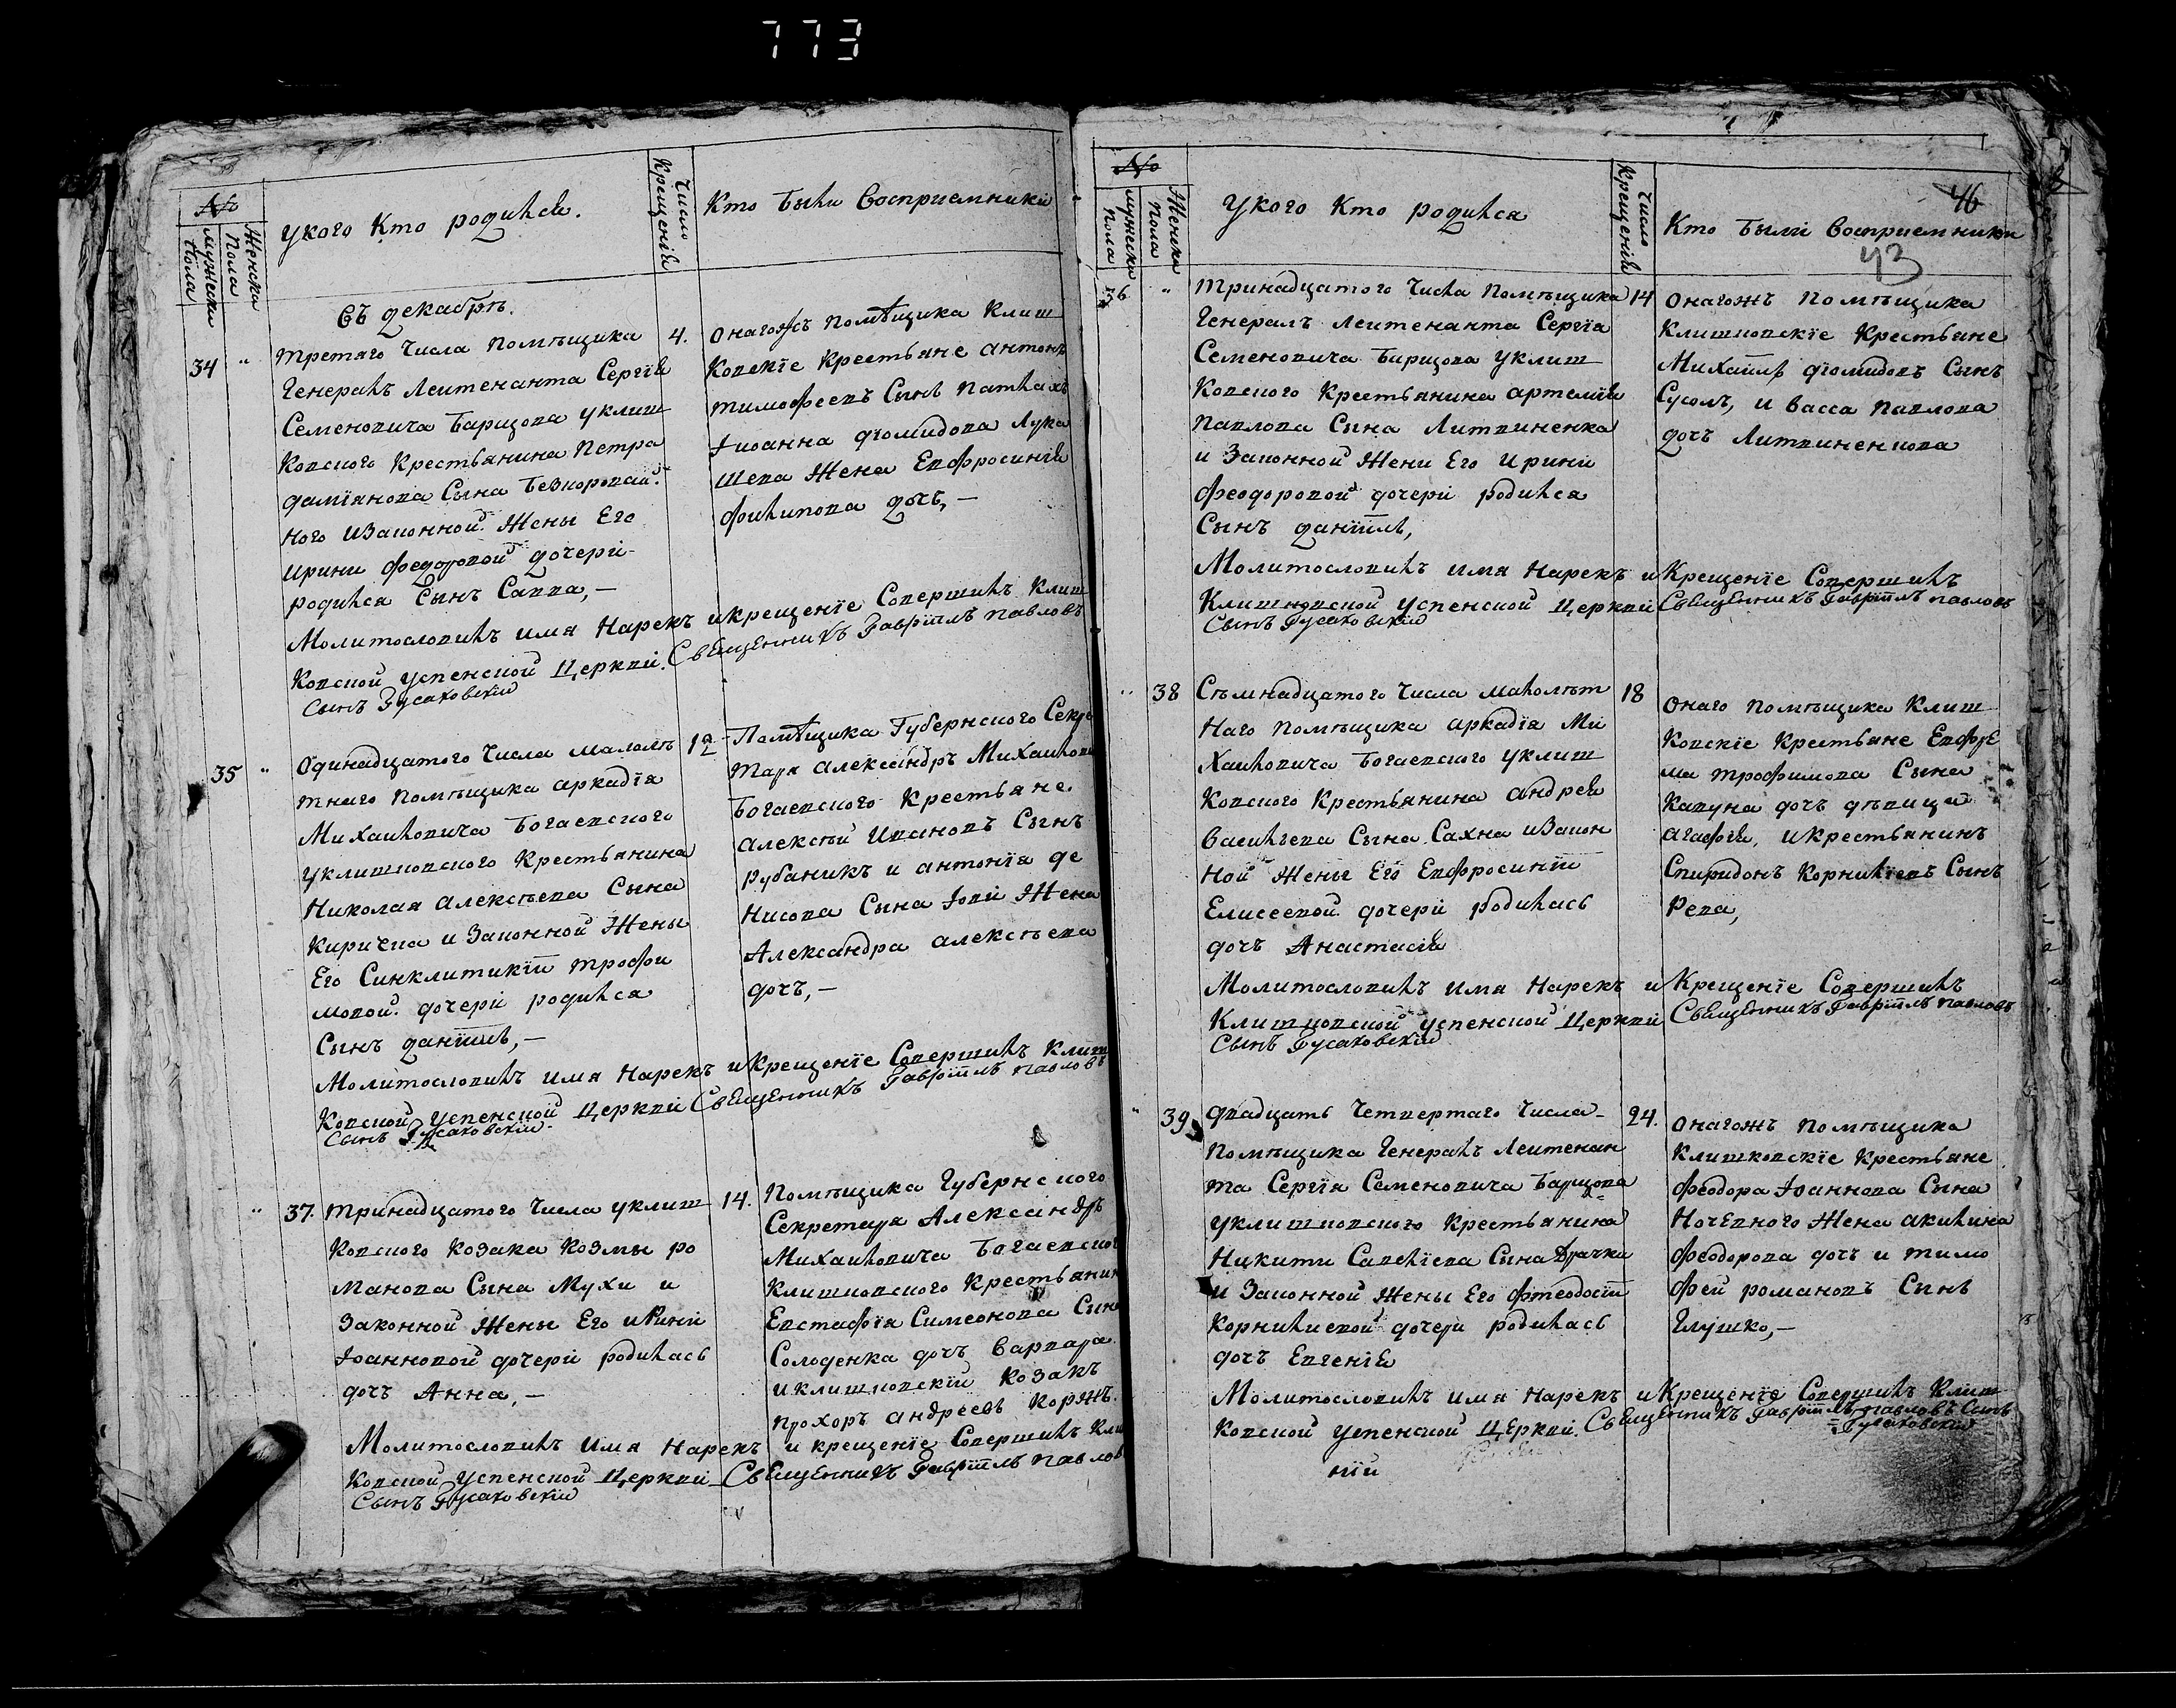 773
№
Мужеска пола
Женска пола
У кого кто родился.
Число крещенія
Кто были восприемники
Въ декабрѣ.
34 " Третяго числа помѣщика
Генералъ Леитенанта Сергія
Семеновича Барщова у Клиш
ковского крестьянина Петра
Даміянова сына Безкоровай
ного и законной жены его
Ирини Федоровой дочери
родился сынъ Савва,—
4. Онагожъ помѣщика Клиш
ковскіе крестьяне Антонъ
Тимофеевъ сынъ
Іоанна Діомидова Лука
шева жена Евфросинія
Филипова дочь,—
Молитвословилъ имя нарекъ и крещеніе совершилъ Клиш
ковской Успенской церкви Священникъ Гавріилъ Павловъ
сынъ Гусаковскій
35 " Одинадцатого числа малолѣ
тнаго помѣщика Аркадія
Михаиловича Богаевского
у Клишковского крестьянина
Николая Алексѣева сына
Киричка и законной жены
его Синклитикіи Трофи
мовой дочери родился
сынъ Даніилъ,—
12 Помѣщика Губернского Секре
таря Александръ Михаилови
Богаевского крестьяне
Алексѣй Ивановъ сынъ
Рубаникъ и Антонія Де
нисова сына жена
Александра Алексѣева
дочь,—
Молитвословилъ имя нарекъ и крещеніе совершилъ Клиш
ковской Успенской церкви Священникъ Гавріилъ Павловъ
сынъ Гусаковскій
" 37. Тринадцатого числа у Клиш
ковского козака Козмы Ро
манова сына Мухи и
законной жены его Ирини
Іоанновой дочери родилась
дочь Анна,—
14. Помѣщика Губернского
Секретаря Александръ
Михаиловича Богаевског
Клишковского крестьянин
Евстафія Симеонова сын
Солоденка дочь Варвара
и Клишковскій козакъ
Прохоръ Андреевъ Коржъ.
Молитвословилъ имя нарекъ и крещеніе совершилъ Кли
ковской Успенской церкви Священникъ Гавріилъ Павлов
сынъ Гусаковскій
№
Мужеска пола
Женска пола
У кого кто родился
Число крещеній
46
Кто были восприемники
43
36 " Тринадцатого числа помѣщика
Генералъ Леитенанта Сергія
Семеновича Барщова у Клиш
ковского крестьянина Артемія
Павлова сына Литвиненка
и законной жени его Ирини
Феодоровой дочери родился
сынъ Даніилъ,
14 Онагожъ помѣщика
Клишковскіе крестьяне
Михаилъ Діомидовъ сынъ
Сусолъ, и Васса Павлова
дочь Литвиненкова
Молитвословилъ имя нарекъ и крещеніе совершилъ
Клишковской Успенской церкви Священникъ Гавріилъ Павловъ
сынъ Гусаковскій
" 38 Сѣмнадцатого числа малолѣт
наго помѣщика Аркадія Ми
хаиловича Богаевского у Клиш
ковского крестьянина Андрея
Василѣева сына Сахна и закон
ной жены его Евфросиніи
Елисеевой дочери родилась
дочь Анастасія
18 Онаго помѣщика Клиш
ковскіе крестьяне Евфре
ма Трофимова сына
Кавуна дочь дѣвица
Агафія, и крестьянинъ
Спиридонъ Корниліевъ сынъ
Репа,
Молитвословилъ имя нарекъ и крещеніе совершилъ
Клишковской Успенской церкви Священникъ Гавріилъ Павловъ
сынъ Гусаковскій
" 39 Двадцать четвертаго числа
помѣщика Генералъ Леитенан
та Сергія Семеновича Барщова
у Клишковского крестьянина
Никити Савеліева сина Драчка
и законной жены его Фтеодосіи
Корнилиевой дочери родилась
дочь Евгенія
24. Онагожъ помѣщика
Клишковскіе крестьяне
Феодора Іоаннова сына
Ночевного жена Акилина
Феодорова дочь и Тимо
фей Романовъ сынъ
Глушко,—
Молитвословилъ имя нарекъ и крещеніе совершилъ Клиш
ковской Успенской церкви Священникъ Гавріилъ Павловъ сынъ
Гусаковскій